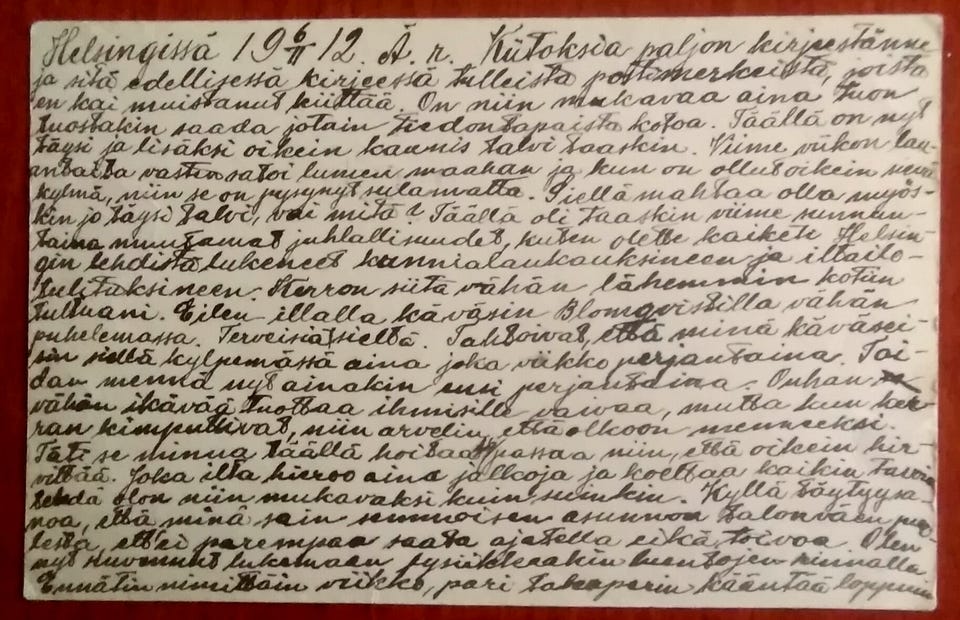 Helsingissä 19 6/II 12. Ä. r. Kiitoksia paljon kirjeestänne
ja siitä edellisessä kirjeessä tulleista postimerkeistä, joista
en kai muistanut kiittää. On niin mukavaa aina tuon
tuostakin saada jotain tiedontapaista kotoa. Täällä on nyt
täysi ja lisäksi oikein kaunis talvi taaskin. Viime viikon lau-
antaita vasten satoi lumen maahan ja kun on ollut oikein
kylmä, niin se on pysynyt sulamatta. Siellä mahtaa olla myös-
kin jo täysi talvi, vai mitä? Täällä oli taaskin viime sunnun-
taina muutamat juhlallisuudet, kuten olette kaiketi Helsin-
gin lehdistä lukeneet kunnialaukauksineen ja iltailo-
tulituksineen. Kerron siitä vähän lähemmin kotiin
tultuani. Eilen illalla käväsin Blomqvistilla vähän
puhelemassa. Terveisiä sieltä. Tahtoivat, että minä käväsei-
sin siellä kylpemässä aina joka viikko perjantaina. Tai-
dan mennä nyt ainakin ensi perjantaina. Onhan
vähän ikävää tuottaa ihmisille vaivaa, mutta kun ker-
ran kimputtivat, niin arvelin, että olkoon menneeksi.
Täti se minua täällä hoitaa passaa niin, että oikein hir-
vittää. Joka ilta hieroo aina jalkoja ja koettaa kaikin tavoin
tehdä olon niin mukavaksi kuin suinkin. Kyllä täytyy sa-
noa, että minä sain semmoisen asunnon talonväen puo-
lesta, ett'ei parempaa saata ajatella eikä toivoa. Olen
nyt ruvennut lukemaan fysiikkaakin luentojen rinnalla.
Ennätin nimittäin viikko, pari takaperin kääntää loppuun